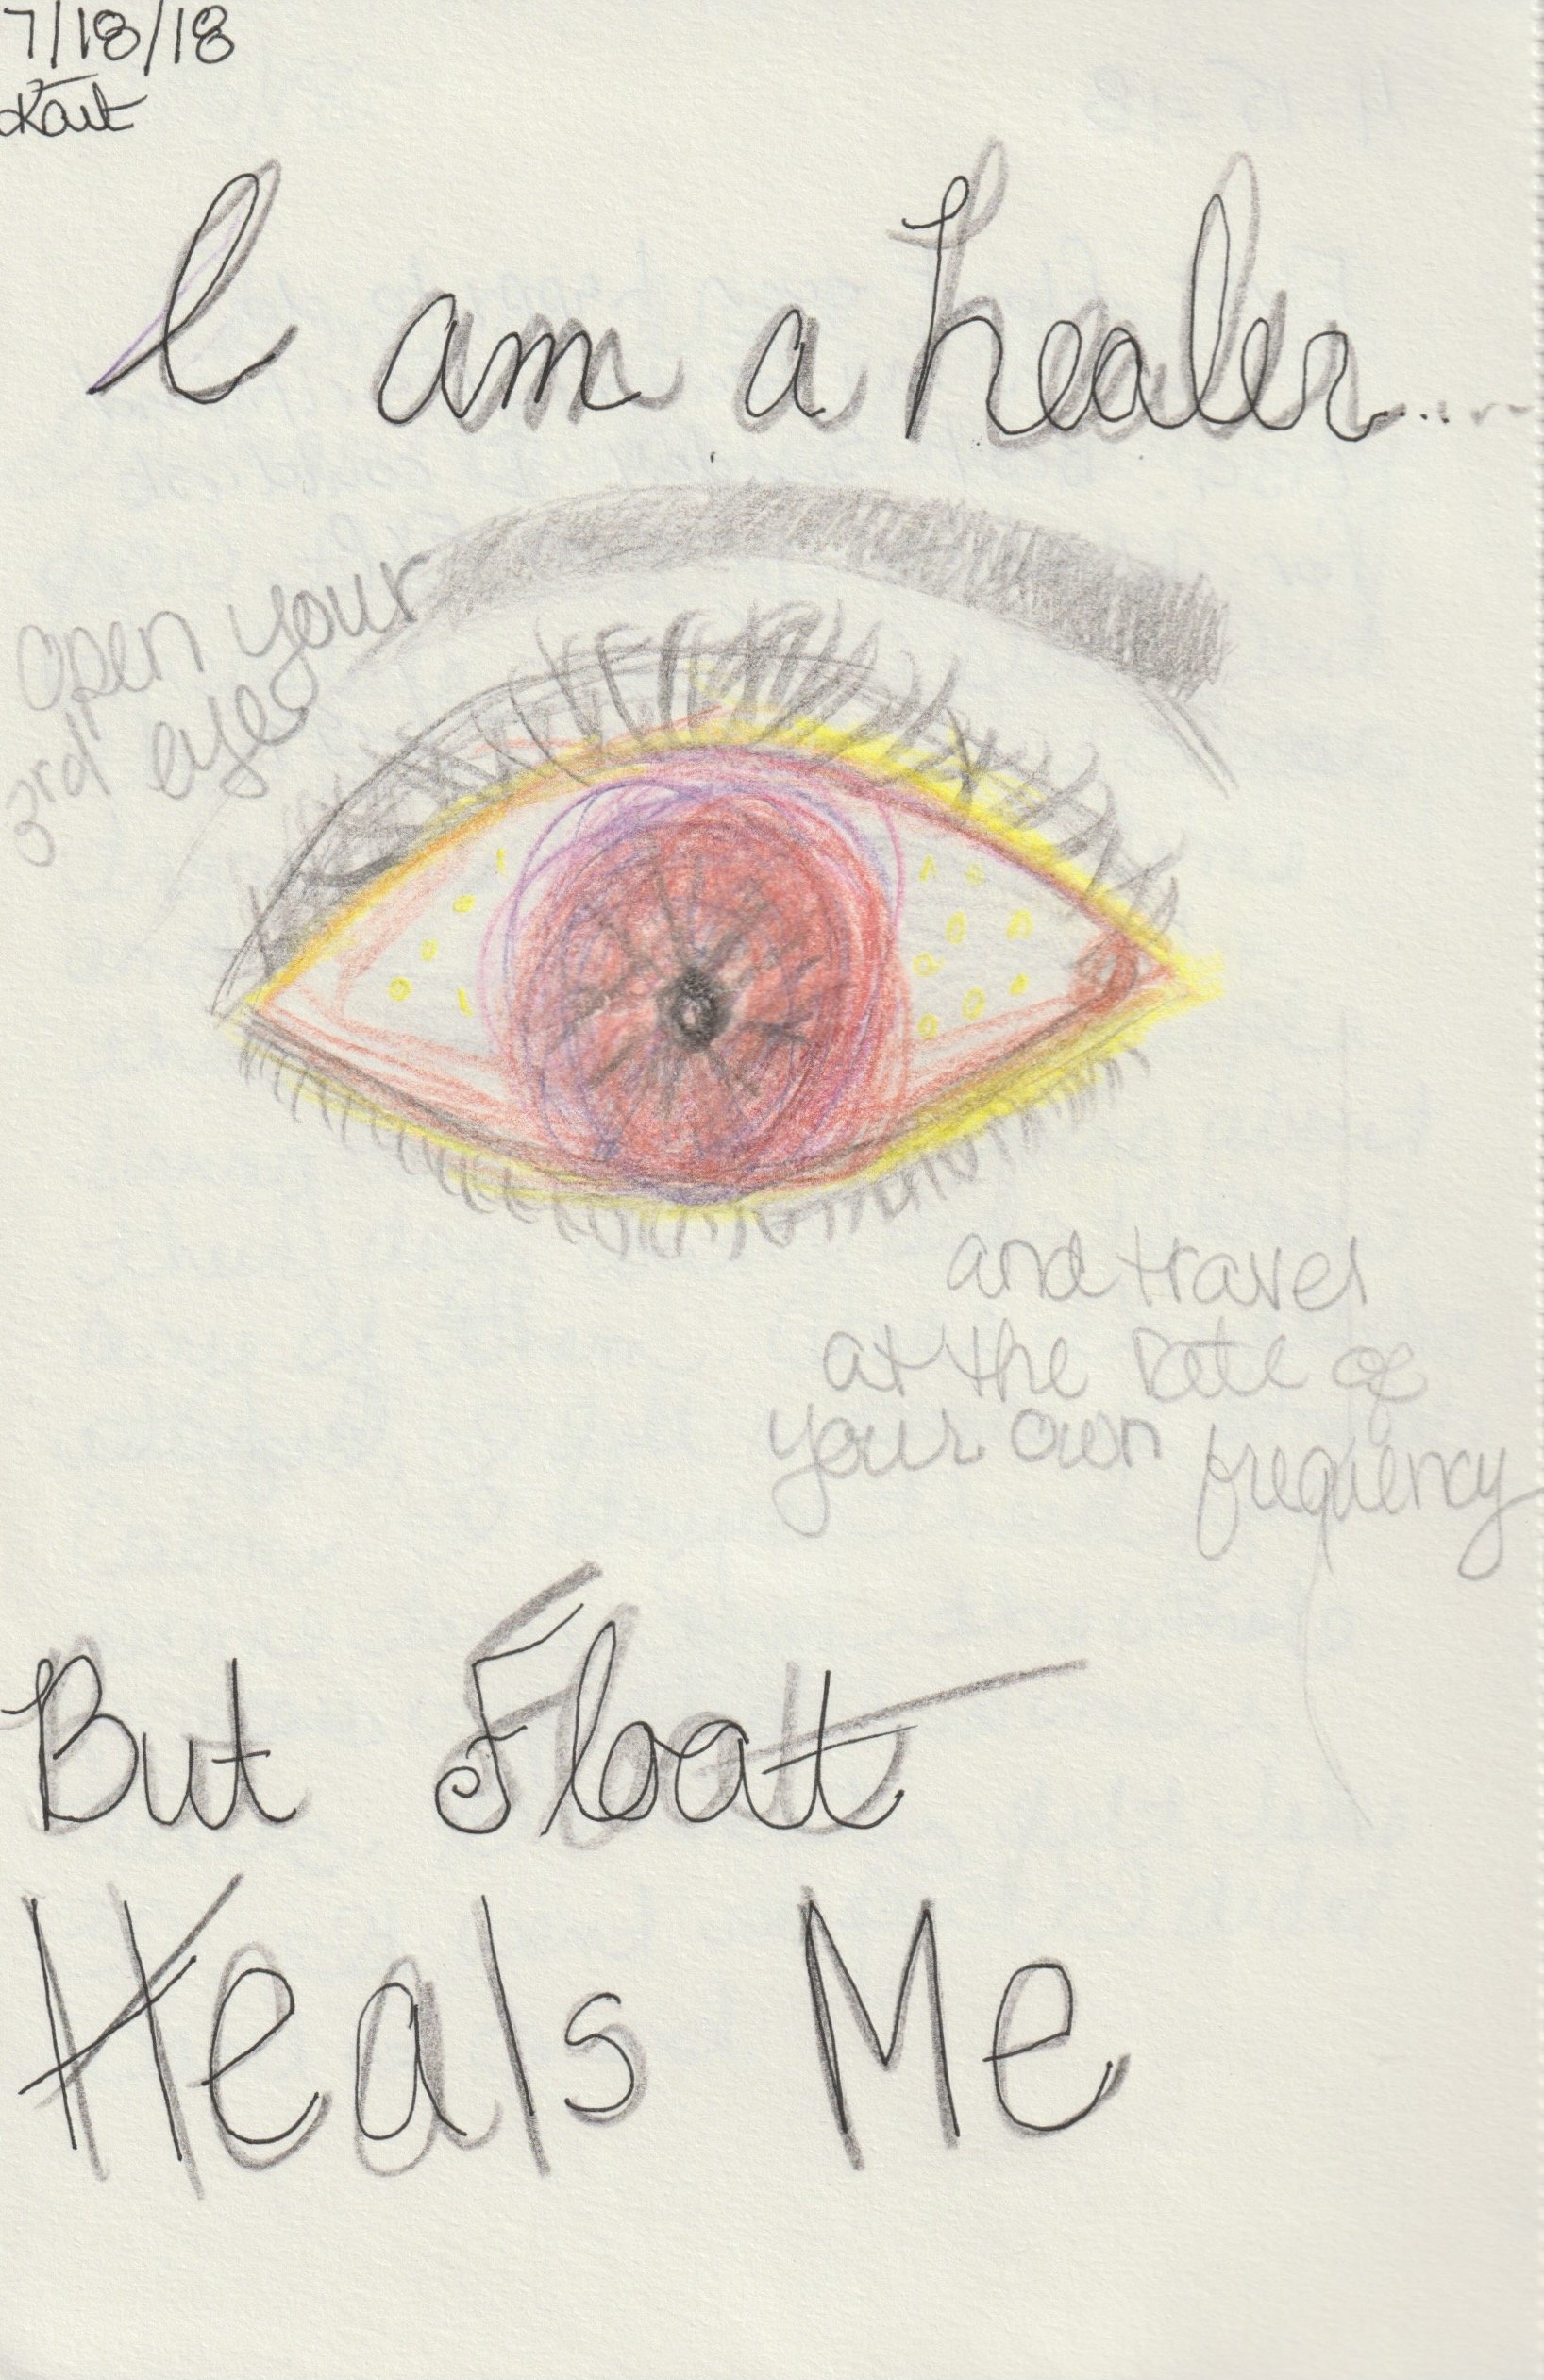 7/18/18
Kait
I am a healer....
Open your
3rd eye
and travel
at the rate of
your own frequency
But Float
Heals Me